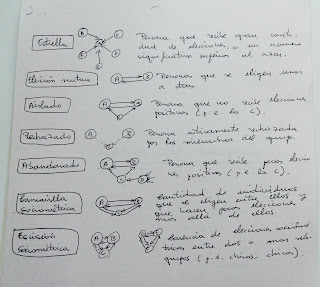 Estrella
Persona que recibe gran canti-
dad de elecciones, o un número
significativo superior al azar.
Elección mutua
A B
Personas que se eligen unos
a otros.
Aislado
A B C
Persona que no recibe elecciones
positivas (p. e. la C).
Rechazado
A B
Persona activamente rechazada
por los miembros del grupo.
Abandonado
A B C D
Persona que recibe pocas elecio-
nes positivas (p. e la C)
Camarilla
Sociométrica
A B C
Cantidad de individuos
que se eligen entre ellos y
que hacen pocas elecciones,
más allá de ellos
Escisión
Sociométrica
A B C
Carencia de elecciones sociomé-
tricas entre dos o más sub-
grupos (p. e. chicos, chicas).